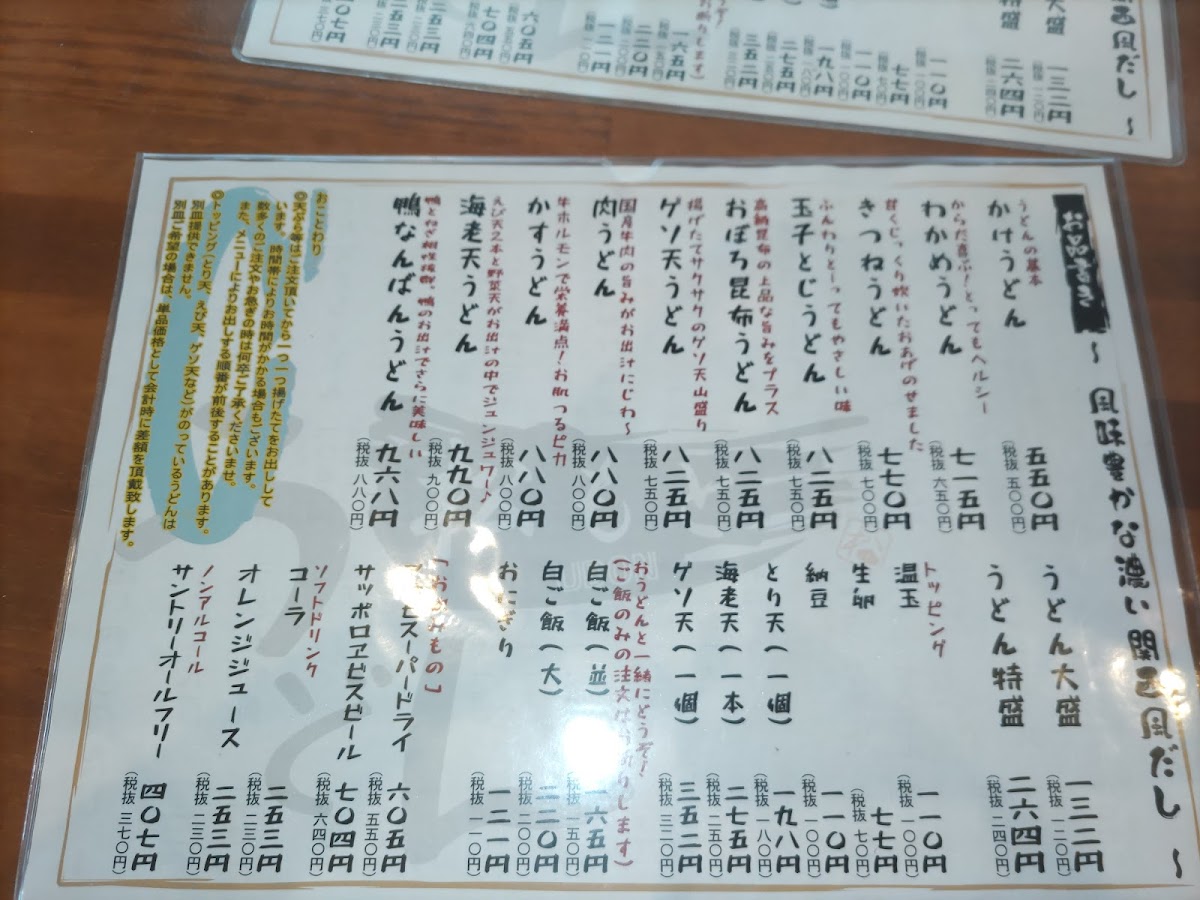 お品書き
～ 風味豊かな濃い関西風だし ～
うどんの基本
かけうどん 五五〇円
(税抜 五〇〇円)
からだ喜ぶ!とってもヘルシー
わかめうどん 七一五円
(税抜 六五〇円)
甘くじっくり炊いたおあげのせました
きつねうどん 七七〇円
(税抜 七〇〇円)
ふんわりとーってもやさしい味
玉子とじうどん 八二五円
(税抜 七五〇円)
高級昆布の上品な旨みをプラス
おぼろ昆布うどん 八二五円
(税抜 七五〇円)
揚げたてサクサクのゲソ天山盛り
ゲソ天うどん 八二五円
(税抜 七五〇円)
国産牛肉の旨みがお出汁にじわ～
肉うどん 八八〇円
(税抜 八〇〇円)
牛ホルモンで栄養満点!お肌つるピカ
かすうどん 八八〇円
(税抜 八〇〇円)
えび天2本と野菜天がお出汁の中でジュンジュワ～♪
海老天うどん 九九〇円
(税抜 九〇〇円)
鴨とねぎ相性抜群、鴨のお出汁でさらに美味しい
鴨なんばんうどん 九六八円
(税抜 八八〇円)
おことわり
◎天ぷら等はご注文頂いてから一つ一つ揚げたてをお出しして
います。時間帯によりお時間がかかる場合もございます。
数多くのご注文やお急ぎの時は何卒ご了承くださいませ。
また、メニューによりお出しする順番が前後することがあります。
◎トッピング(とり天、えび天、ゲソ天など)がのっているうどんは
別皿提供できません。
別皿ご希望の場合は、単品価格として会計時に差額を頂戴致します。
うどん大盛 一三二円
(税抜 一二〇円)
うどん特盛 二六四円
(税抜 二四〇円)
トッピング
温玉 一一〇円
(税抜 一〇〇円)
生卵 七七円
(税抜 七〇円)
納豆 一一〇円
(税抜 一〇〇円)
とり天(一個) 一九八円
(税抜 一八〇円)
海老天(一本) 二七五円
(税抜 二五〇円)
ゲソ天(一個) 三五二円
(税抜 三二〇円)
おうどんと一緒にどうぞ!
(ご飯のみの注文はお断りします)
白ご飯(並) 一六五円
(税抜 一五〇円)
白ご飯(大) 二二〇円
(税抜 二〇〇円)
おにぎり 一二一円
(税抜 一一〇円)
【おのみもの】
アサヒスーパードライ 六〇五円
(税抜 五五〇円)
サッポロヱビスビール 七〇四円
(税抜 六四〇円)
ソフトドリンク
コーラ 二五三円
(税抜 二三〇円)
オレンジジュース 二五三円
(税抜 二三〇円)
ノンアルコール
サントリーオールフリー 四〇七円
(税抜 三七〇円)
関西風だし ～
大盛 一三二円
(税抜 一二〇円)
特盛 二六四円
(税抜 二四〇円)
一一〇円
(税抜 一〇〇円)
七七円
(税抜 七〇円)
一一〇円
(税抜 一〇〇円)
一九八円
(税抜 一八〇円)
二七五円
(税抜 二五〇円)
三五二円
(税抜 三二〇円)
お断りします)
一六五円
(税抜 一五〇円)
二二〇円
(税抜 二〇〇円)
一二一円
(税抜 一一〇円)
六〇五円
(税抜 五五〇円)
七〇四円
(税抜 六四〇円)
二五三円
(税抜 二三〇円)
二五三円
(税抜 二三〇円)
四〇七円
(税抜 三七〇円)